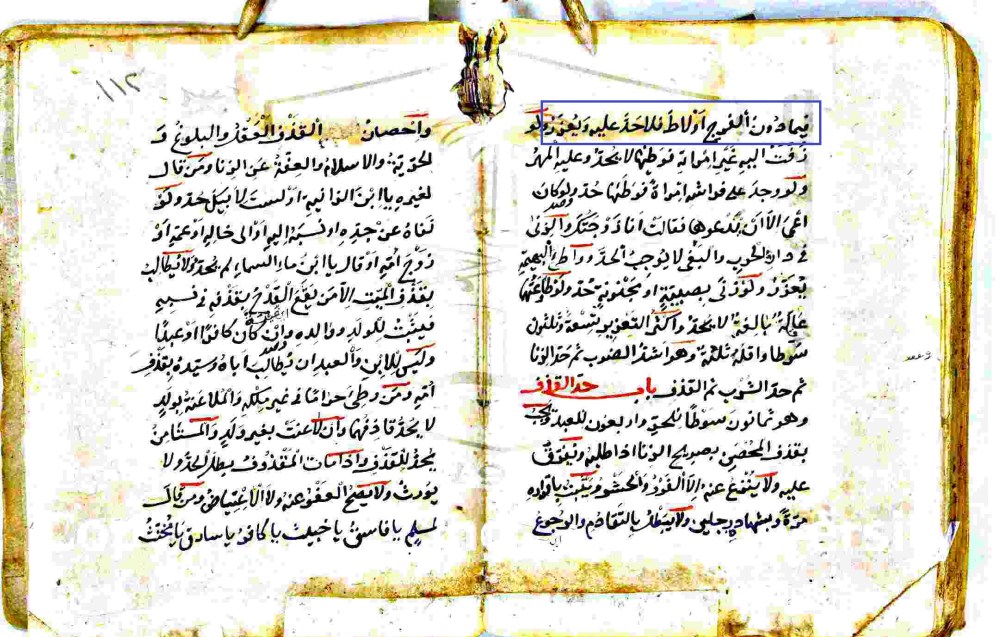 فيما دون الفرج أو لاط فلا حد عليه ويعزر ولو
زفت اليه غير امراته فوطئها لا يحد وعليه المهر
ولو وجد على فراشه امراة فوطئها حد ولو كان
اعمى الا ان يدعوها فقالت انا زوجتك والزنى
في دار الحرب والبغي لا يوجب الحد وواطئ البهيمة
يعزر ولو زنى بصبية او مجنونة حد ولو طاوعت
عاقلة بالغة لا يحد واكثر التعزير تسعة وثلثون
سوطا واقله ثلثة وهو اشد الضرب ثم حد الزنا
ثم حد الشرب ثم القذف باب حد القذف
وهو ثمانون سوطا للحر واربعون للعبد ويجب
بقذف المحصن بصريح الزنا اذا طالبه ويفرق
عليه ولا ينزع عنه الا الفرو والحشو ويثبت باقراره
مرة وبشهادة رجلين ولا يبطل بالتقادم والرجوع
١١٢
واحصان القذف العقل والبلوغ و
الحرية والاسلام والعفة عن الزنا ومن قال
لغيره يا ابن الزانية او لست لابيك حد ولو
نفاه عن جده او نسبه اليه او الى خاله او عمه او
زوج امه او قال يا ابن ماء السماء لم يحد ولا يطالب
بقذف الميت الا من يقع القدح بقذفه في نسبه
فيثبت للولد وولده وان كان كافرا او عبدا
وليس للابن والعبد ان يطالب اباه وسيده بقذف
امه ومن وطئ حراما في غير ملكه والملاعنة بولد
لا يحد قاذفهما وان لاعنت بغير ولد والمستامن
يحد للقذف واذا مات المقذوف بطل الحد ولا
يورث ولا يصح العفو عنه ولا الاعتياض ومن قال
لمسلم يا فاسق يا خبيث يا كافر يا سارق يا مخنث